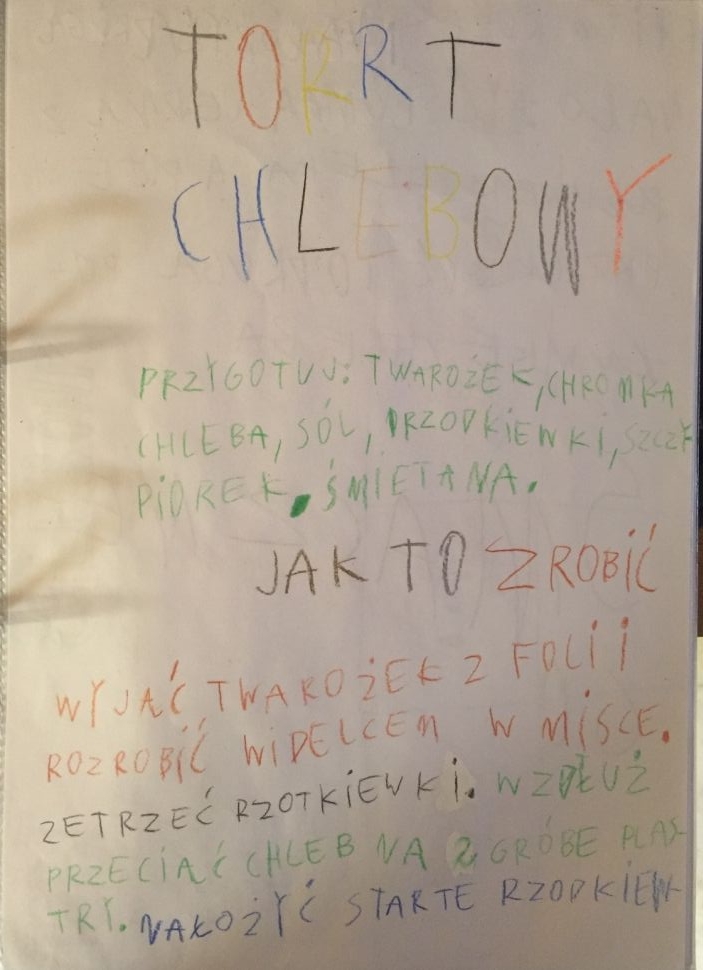 TORRT
CHLEBOWY
PRZYGOTUJ: TWAROŻEK, CHROMKA
CHLEBA, SÓL, RZODKIEWKI, SZCZY
PIOREK, ŚMIETANA.
JAK TO ZROBIĆ
WYJĄĆ TWAROŻEK Z FOLII I
ROZROBIĆ WIDELCEM W MISCE.
ZETRZEĆ RZOTKIEWKI. WZDŁUŻ
PRZECIĄĆ CHLEB NA 2 GRÓBE PLAS-
TRY. NAŁOŻYĆ STARTE RZODKIEW-